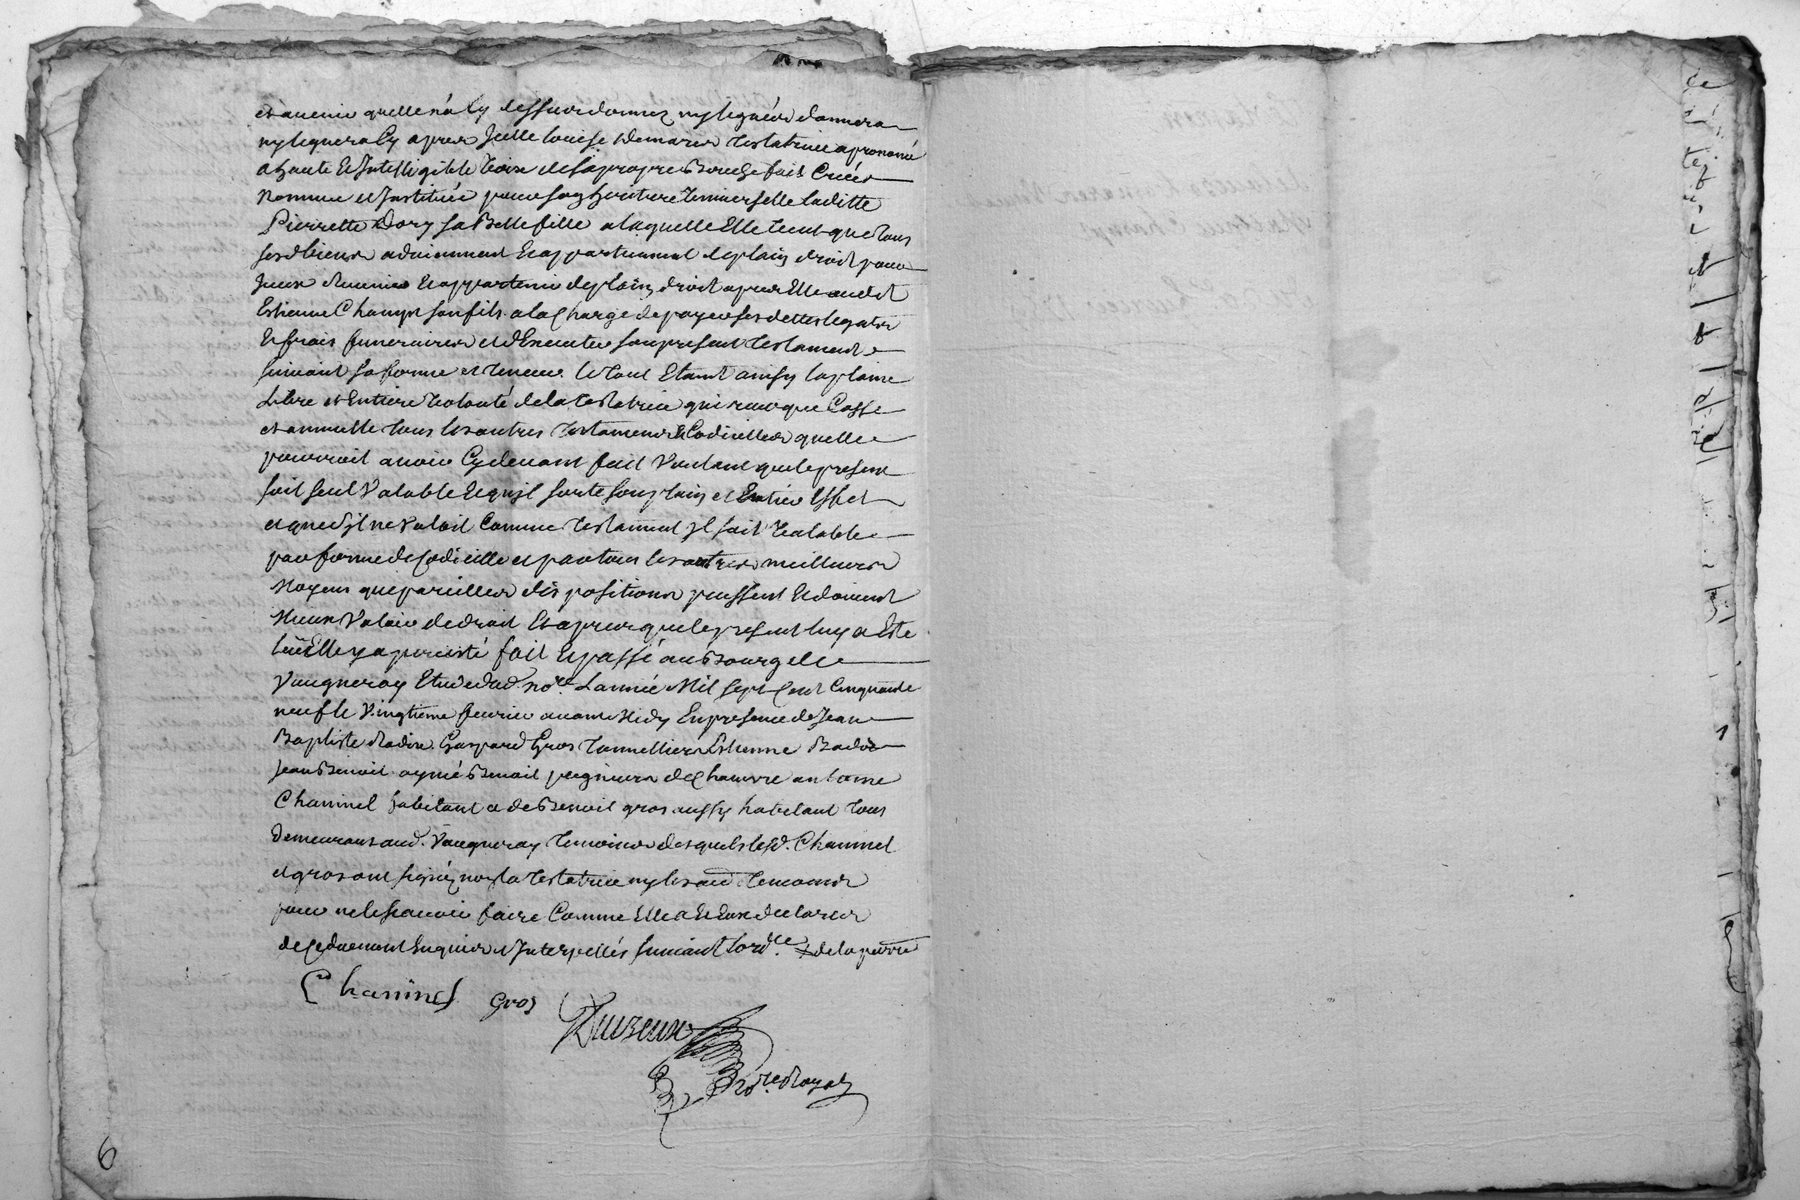 et avenir quelle na cy dessus donnez ny leguéz donnera
ny leguera cy apres Jcelle louise Demarer testatrice a prononcé
a haute et Intelligible voix de sa propre Bouche fait Créér
Nommé et Jnstitué pour son heritiere universelle laditte
Pierrette Dory sa Belle fille a laquelle Elle veut que tous
ses biens adviennent et appartiennent de plain droit pour
Jceux Revenir et appartenir de plain droit apres Elle audit
Estienne Champt son fils a la Charge de payer ses dettes legats
et frais funeraires et dExecuter son present testament
suivant sa forme et teneur le tout Etant ainsy la plaine
Libre et Entiere volonté de la testatrice qui revoque Casse
et annulle tous les autres testamens et Codicilles quelle
pourroit avoir Cydevant fait voulant que le present
soit seul Valable et quil sorte son plain et Entier Effet
et que sil ne valoit Comme testament Jl soit valable
par forme de Codicille et par tous les autres meilleurs
Moyens que pareilles dispositions peussent et doivent
Mieux valoir de droit Et apres que le present luy a Eté
leu Elle y a percisté fait et passé au Bourg de
Vaugneray Etude dud. nore. Lannée Mil sept Cent Cinquante
neuf le vingtieme fevrier avant Midy En presence de Jean
Baptiste Gaspard Gros tonnellier Estienne
Jean Benoit aymé Benoit peigneurs de Chanvre antoine
Chaninel habitant et de Benoit gros aussy habitant tous
demeurans aud. Vaugneray temoins desquels lesd. Chaninel
et gros ont signéz non la testatrice ny les aud temoins
pour ne le scavoir faire Comme Elle et Eux declarés
de Ce duement Enquis et Jnterpellés suivant lordce.
Chaninel Gros
nore. Royal
6